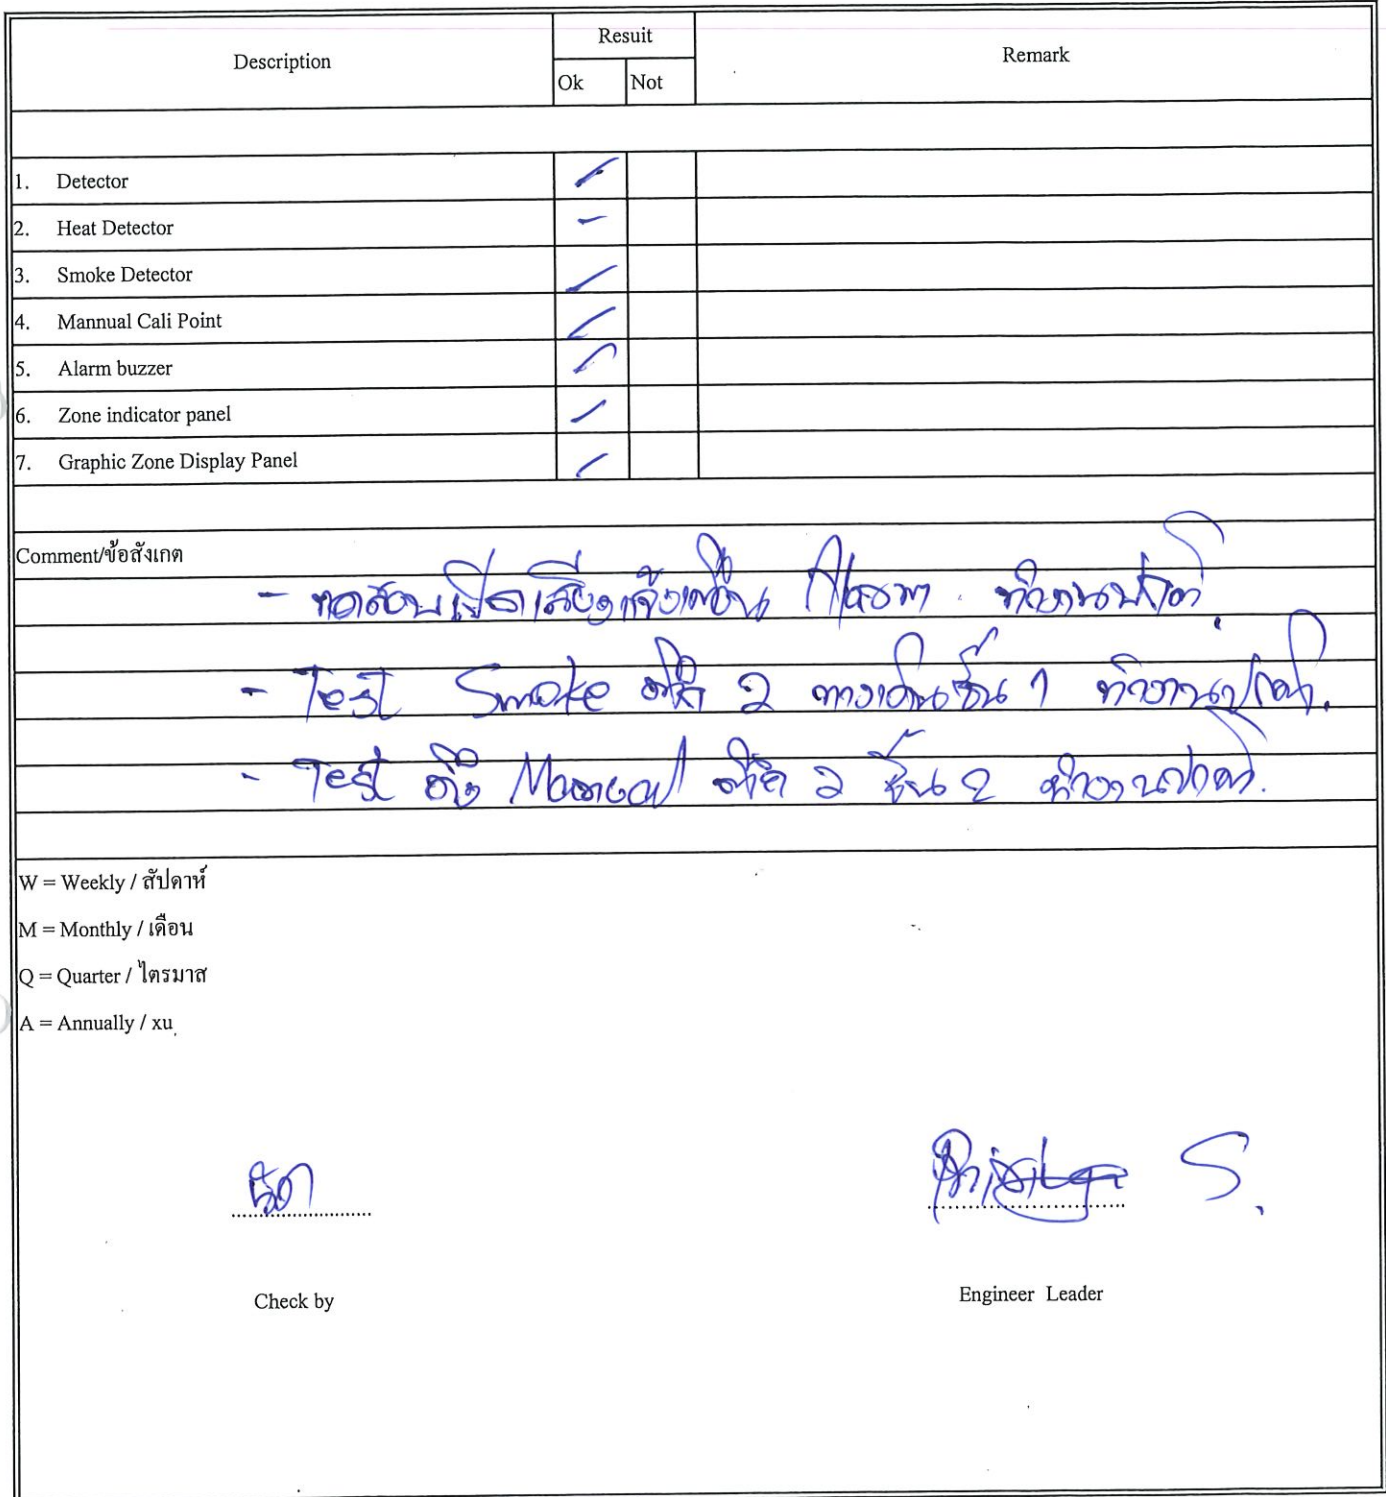 Description
Resuit
Remark
Ok
Not
1. Detector
2. Heat Detector
3. Smoke Detector
4. Mannual Cali Point
5. Alarm buzzer
6. Zone indicator panel
7. Graphic Zone Display Panel
Comment/ข้อสังเกต
- ทดสอบเปิดเสียงแจ้งเตือน Alarm ทำงานปกติ
- Test Smoke ตึก 2 ทางเดินชั้น 1 ทำงานปกติ.
- Test ดึง Manual ตึก 2 ชั้น 2 ทำงานปกติ.
W = Weekly / สัปดาห์
M = Monthly / เดือน
Q = Quarter / ไตรมาส
A = Annually / xu
S.
Check by
Engineer Leader